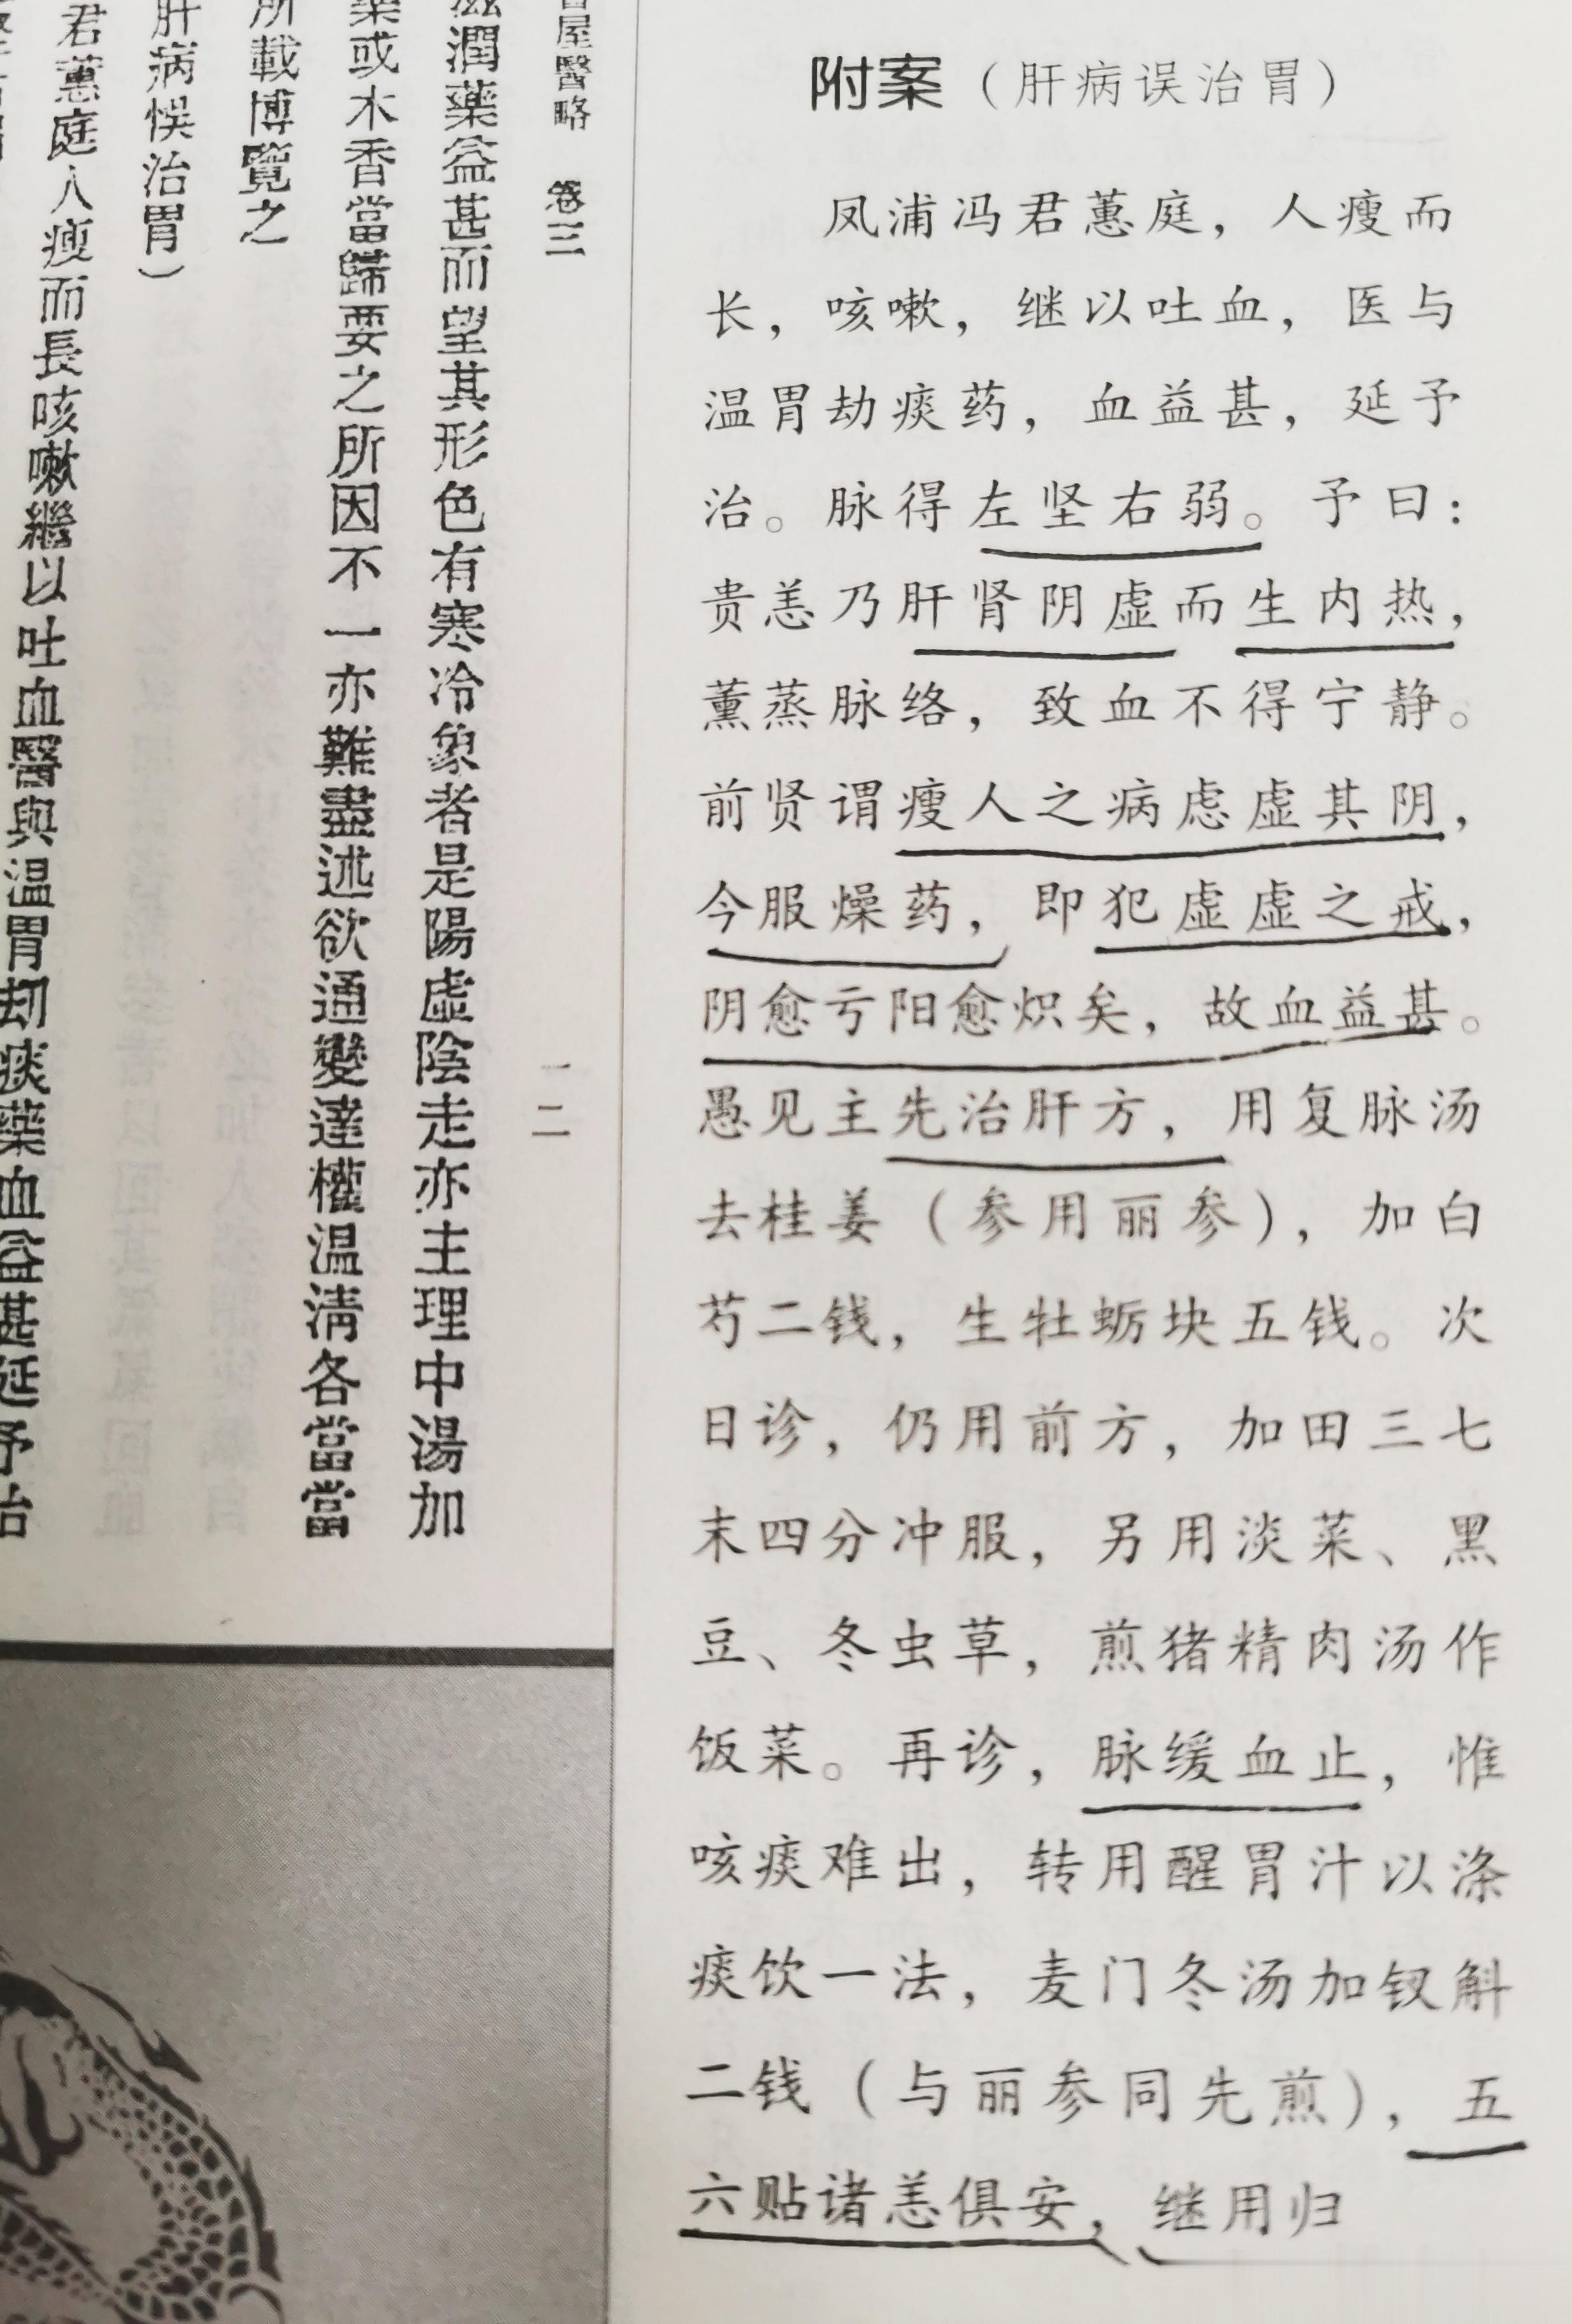 屋醫略 卷三
一二
滋潤藥益甚而望其形色有寒冷象者是陽虛陰走亦主理中湯加
藥或木香當歸要之所因不一亦難盡述欲通變達權温淸各當當
所載博覽之
肝病悞治胃）
君蕙庭人瘦而長咳嗽繼以吐血醫與温胃刧痰藥血益甚延予治
附案（肝病误治胃）
凤浦冯君蕙庭，人瘦而
长，咳嗽，继以吐血，医与
温胃劫痰药，血益甚，延予
治。脉得左坚右弱。予曰：
贵恙乃肝肾阴虚而生内热，
薰蒸脉络，致血不得宁静。
前贤谓瘦人之病虑虚其阴，
今服燥药，即犯虚虚之戒，
阴愈亏阳愈炽矣，故血益甚。
愚见主先治肝方，用复脉汤
去桂姜（参用丽参），加白
芍二钱，生牡蛎块五钱。次
日诊，仍用前方，加田三七
末四分冲服，另用淡菜、黑
豆、冬虫草，煎猪精肉汤作
饭菜。再诊，脉缓血止，惟
咳痰难出，转用醒胃汁以涤
痰饮一法，麦门冬汤加钗斛
二钱（与丽参同先煎），五
六贴诸恙俱安，继用归